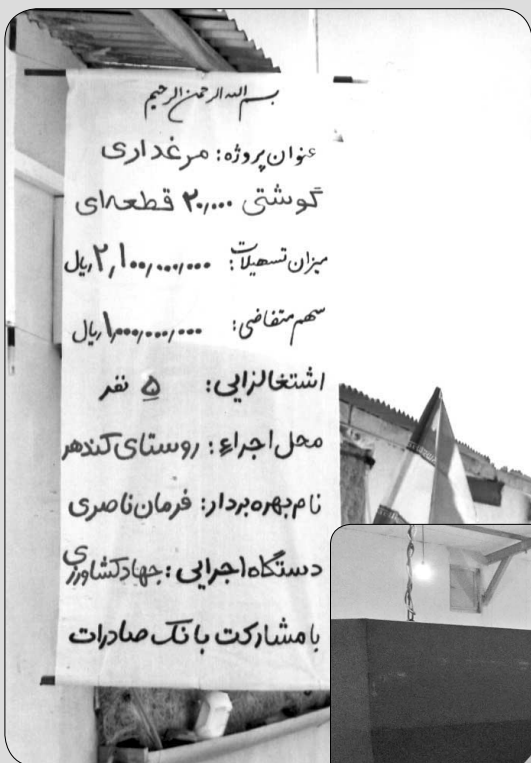 بسم الله الرحمن الرحیم
عنوان پروژه: مرغداری
گوشتی ۲۰,۰۰۰ قطعه‌ای
میزان تسهیلات: ۲,۱۰۰,۰۰۰,۰۰۰ ریال
سهم متقاضی: ۱,۰۰۰,۰۰۰,۰۰۰ ریال
اشتغالزایی: ۵ نفر
محل اجراء: روستای کندهر
نام بهره بردار: فرمان ناصری
دستگاه اجرایی: جهاد کشاورزی
با مشارکت بانک صادرات